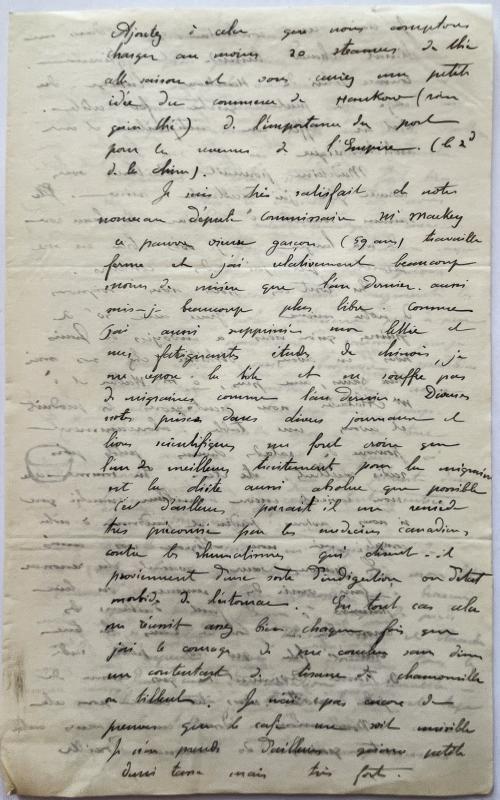 Ajoutez à cela que nous comptons
charger au moins 20 steamers de thé
cette saison et vous aurez une petite
idée du commerce de Hankow (rien
qu'en thé) & de l'importance du port
pour les revenus de l'Empire. (le 2d
de la chine).
Je suis très satisfait de notre
nouveau député commissaire Mr Mackey
ce pauvre vieux garçon (59 ans) travaille
ferme et j'ai relativement beaucoup
moins de misère que l'an dernier. aussi
suis-je beaucoup plus libre. comme
j'ai aussi supprimé mon lettré et
mes fatigantes études de chinois, je
me repose la tête et ne souffre pas
de migraines comme l'an dernier. Diverses
notes prises dans divers journaux et
livres scientifiques me font croire que
l'un des meilleurs traitements pour les migraines
est la diète aussi absolue que possible
c'est d'ailleurs paraît il un remède
très préconisé par les médecins canadiens
contre les rhumatismes qui disent-il
proviennent d'une sorte d'indigestion ou d'état
morbide de l'estomac. En tout cas cela
me réussit assez bien chaque fois que
j'ai le courage de me coucher sans dîner
me contentant de tisane de chamomille
ou tilleul. Je n'ai pas encore de
preuves que le café me soit nuisible
Je n'en prends d'ailleurs qu'une petite
demi tasse mais très fort.